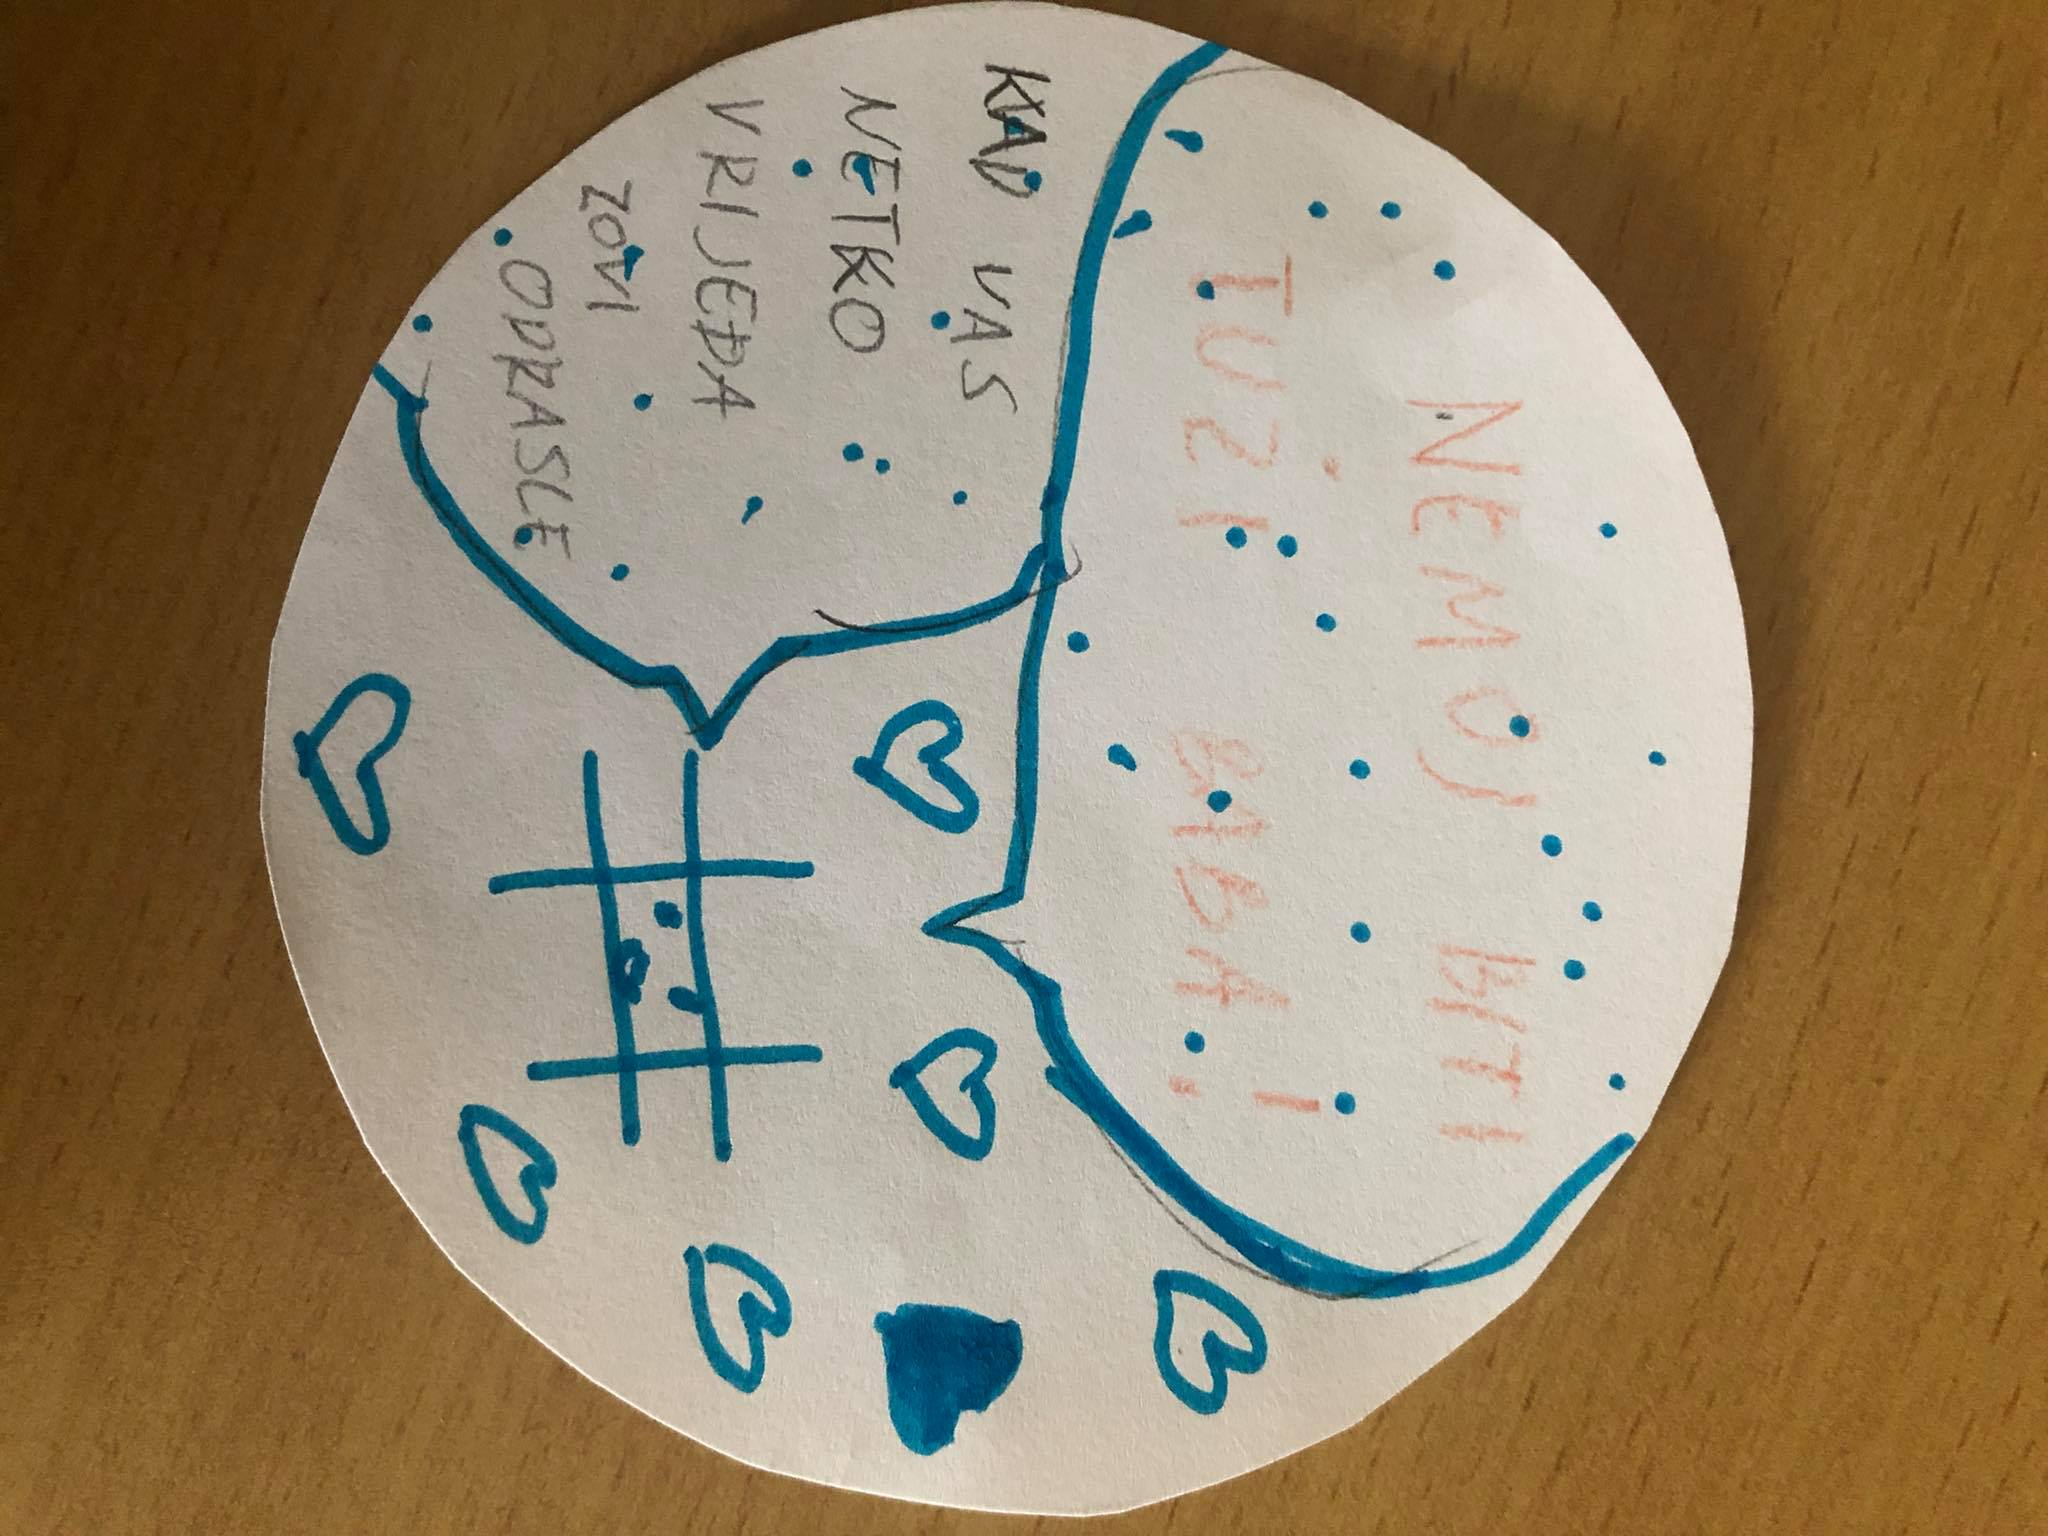 NEMOJ BITI
TUŽI BABA!
KAD VAS
NETKO
VRIJEĐA
ZOVI
ODRASLE